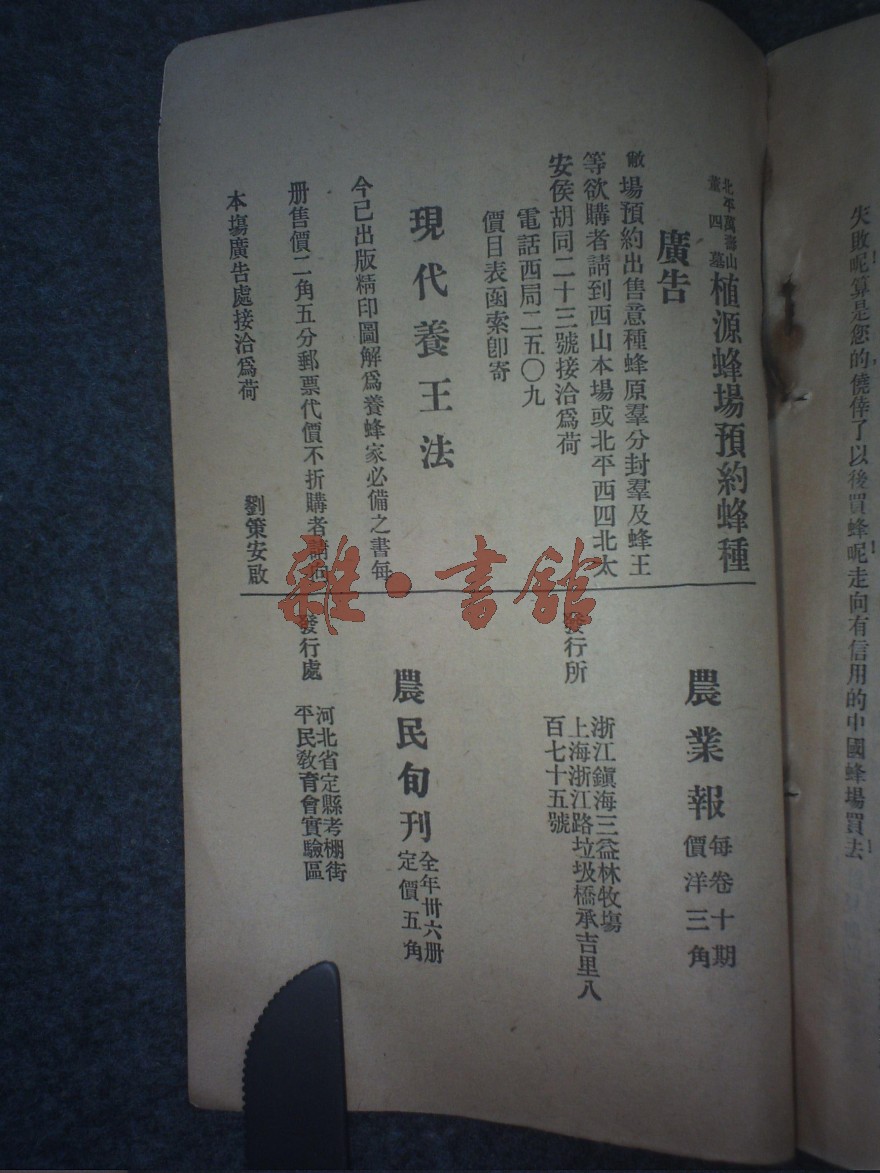 失敗呢算是您的僥倖了以後買蜂呢走向有信用的中國蜂場買去
北平萬壽山
董四墓
植源蜂場預約蜂種
廣告
敝場預約出售意種蜂原羣分封羣及蜂王
等欲購者請到西山本場或北平西四北太
安侯胡同二十三號接洽爲荷
電話西局二五〇九
價目表函索卽寄
現代養王法
今已出版精印圖解爲養蜂家必備之書每
册售價二角五分郵票代價不折購者請
本塲廣告處接洽爲荷
劉策安啟
農業報
每卷十期
價洋三角
發行所
浙江鎮海三益林牧塲
上海浙江路垃圾橋承吉里八
百七十五號
農民旬刊
全年卅六册
定價五角
發行處
河北省定縣考棚街
平民敎育會實驗區
雜·書館